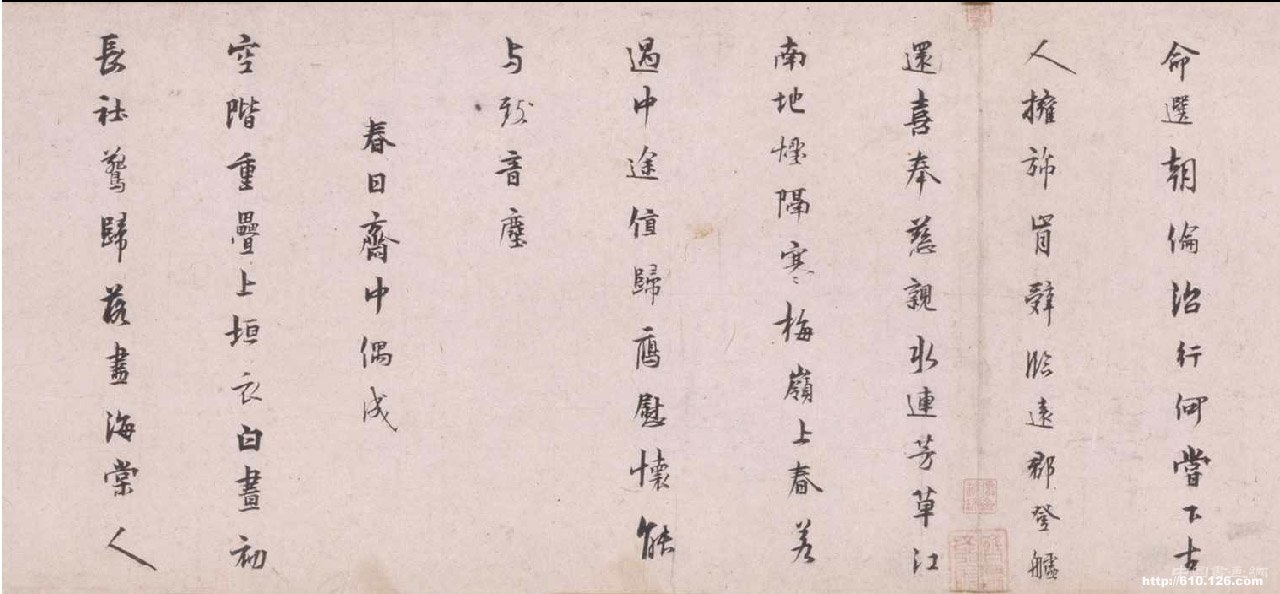 命選朝倫治行何嘗下古
人擁旆肯辭臨遠郡登艫
還喜奉慈親水連芳草江
南地煙隔寒梅嶺上春若
過中途值歸鴈慰懷能
与致音塵
春日齋中偶成
空階重疊上垣衣白晝初
長社鷰歸落盡海棠人
http://610.126.com